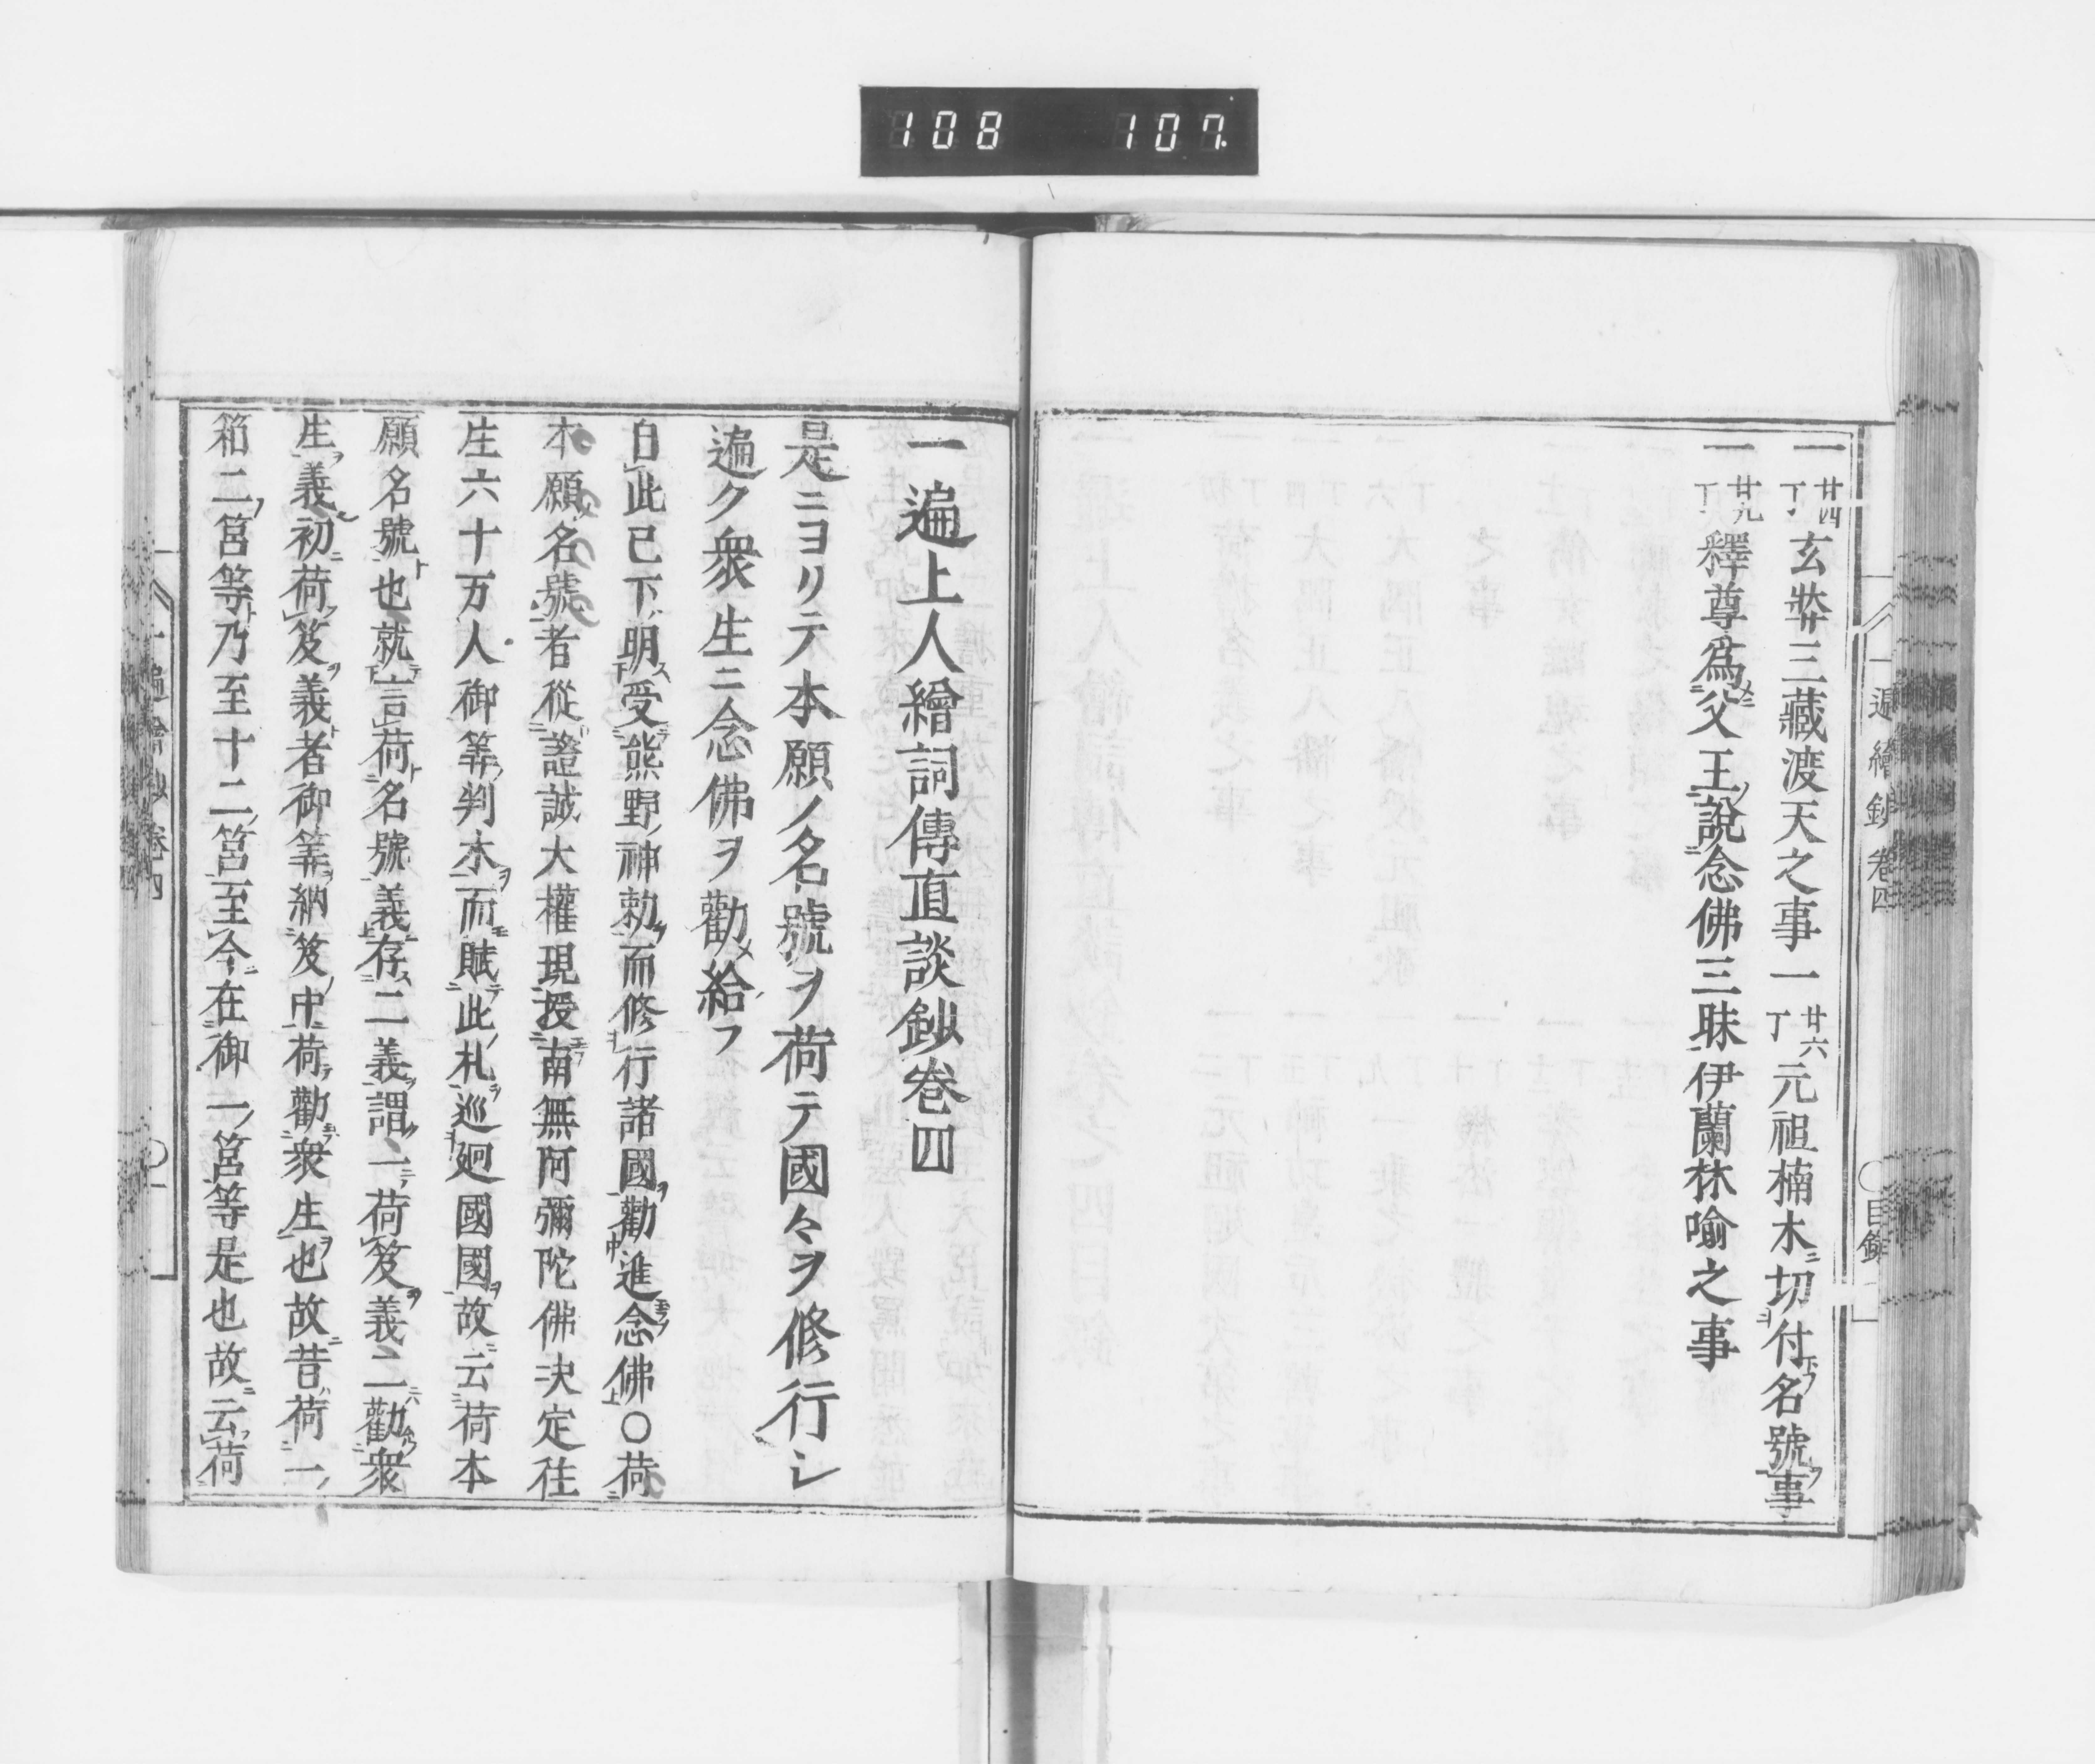 108 107
一廿四丁玄弉三藏渡天之事一廿六丁元祖楠木ニ切付名號事
一廿九丁釋尊爲父王說念佛三昧伊蘭林喻之事
遍繪鈔卷四 目錄
一遍上人繪詞傳直談鈔卷四
是ニヨリテ本願ノ名號ヲ荷テ國々ヲ修行シ
遍ク衆生ニ念佛ヲ勸メ給フ
自此已下明受熊野神勅而修行諸國勸進念佛〇荷
本願名號者從證誠大權現授南無阿彌陀佛決定往
生六十万人御筭判木而賦此札巡廻國國故云荷本
願名號也就言荷名號義存二義謂一荷笈義二勸衆
生義初荷笈義者御筭納笈中荷勸衆生也故昔荷一
箱二筥等乃至十二筥至今在御一筥等是也故云荷